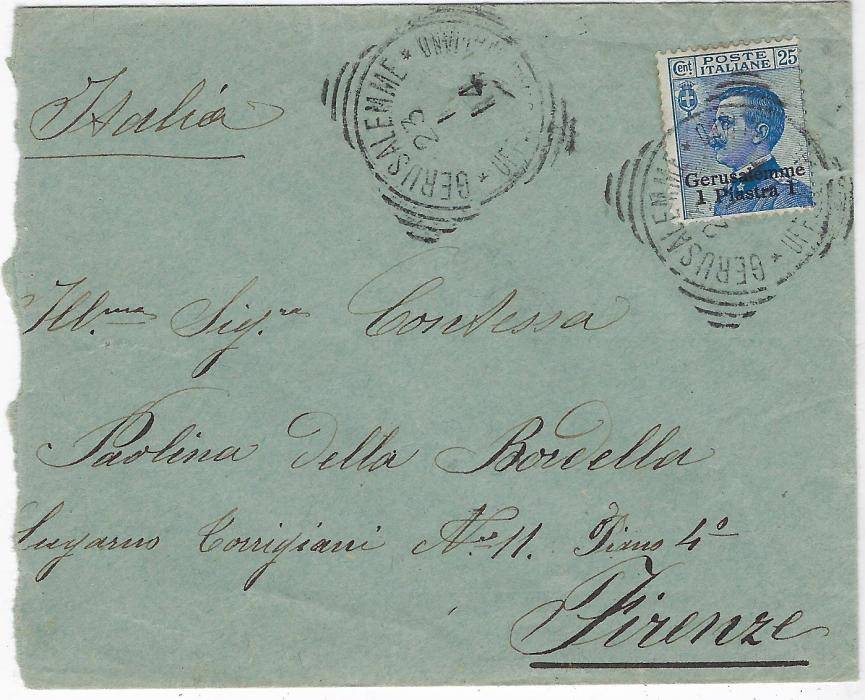 Italia
GERUSALEMME * 23 - 14
Cent POSTE ITALIANE 25
Gerusalemme
1 Piastra 1
GERUSALEMME *
Ill.ma Sig.ra Contessa
Paolina della Bordella
Lugarno Torrigiani N.º 11. Piano 4º
Firenze